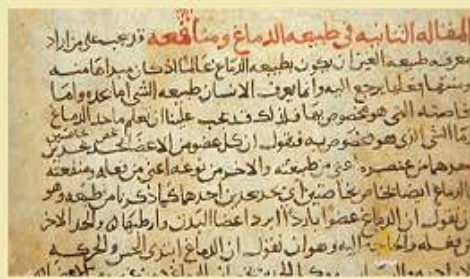 المقالة الثانية في طبيعة الدماغ ومنافعه قد يجب على من اراد
معرفة طبيعة العين ان يكون بطبيعة الدماغ عالما اذ كان مبداها منه
ومنتهى فعلها يرجع اليه وانما يعرف الانسان طبيعة الشي اما بحده واما
بخاصته التي هو مخصوص بها فلذلك قد يجب علينا ان نعلم ما حد الدماغ
وما الشي الذي هو مخصوص به فنقول ان كل عضو من الاعضا يحد بحدين
احدهما من عنصره اعني من طبيعته والاخر من نوعه اعني من فعله ومنفعته
والدماغ ايضا يحد بحدين احدهما ماخوذ من طبيعته وهو
ان نقول ان الدماغ عضوا باردا ابرد اعضا البدن وارطبها والحد الاخر
من فعله والحاجة اليه وهو ان نقول ان الدماغ ابتدى الحس والحركة